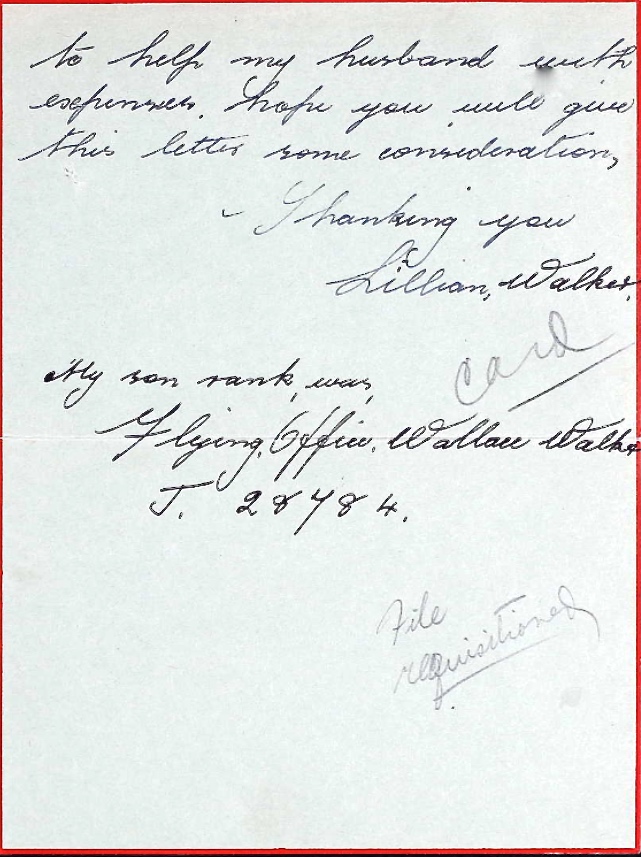 to help my husband with
expenses. hope you will give
this letter some consideration,
Thanking you
Lillian, Walker.
card
My son rank, was,
Flying. Office. Wallace Walke
J. 28784.
File
requisitioned